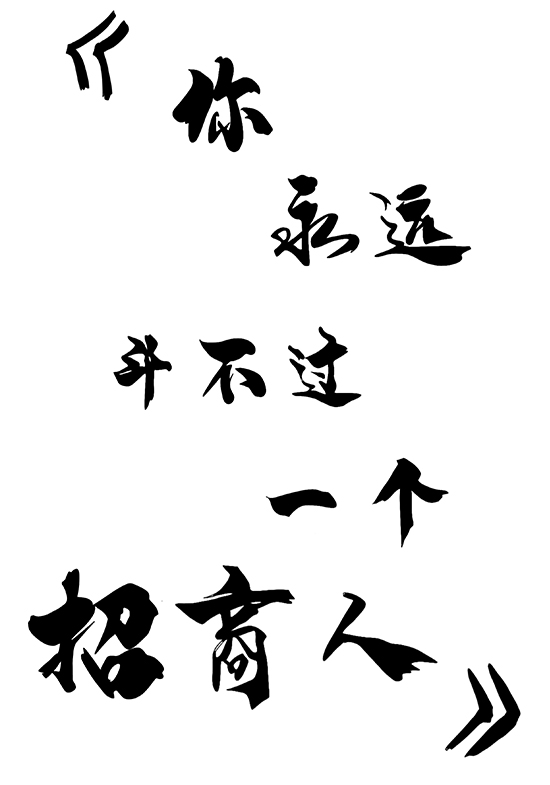 《你
永远
斗不过
一个
招商人》